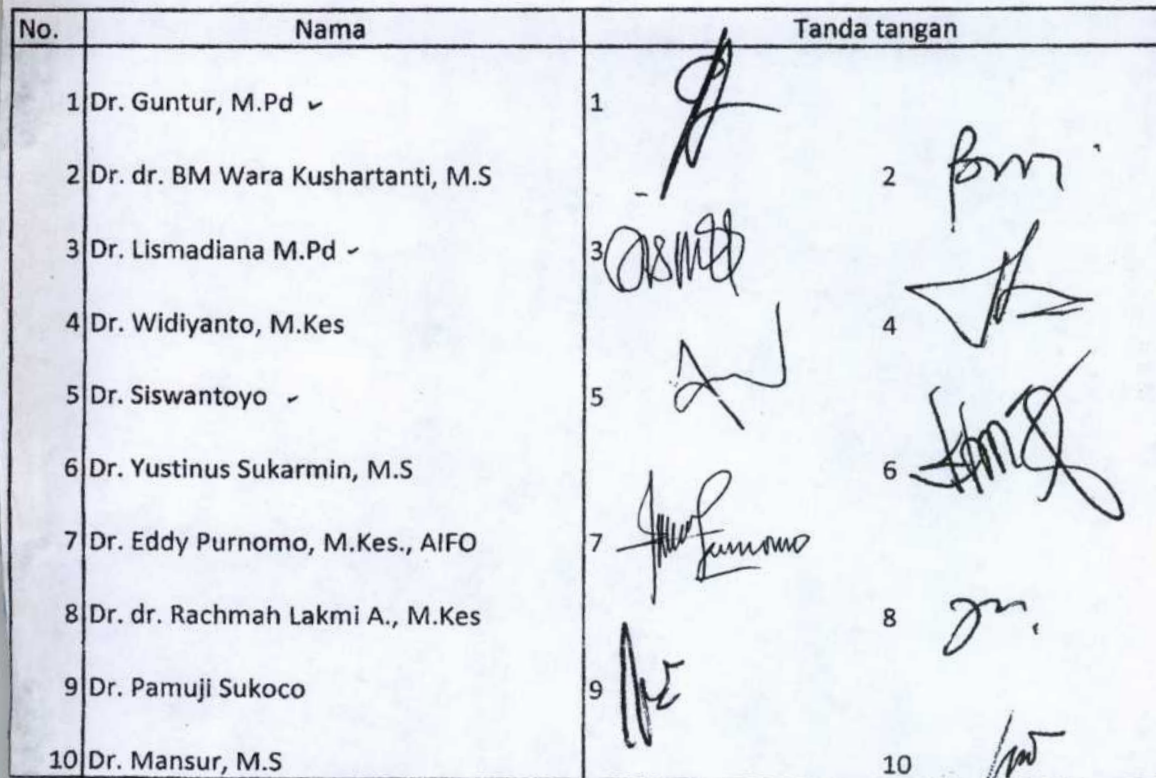 No. Nama Tanda tangan
1 Dr. Guntur, M.Pd 1
2 Dr. dr. BM Wara Kushartanti, M.S 2
3 Dr. Lismadiana M.Pd 3
4 Dr. Widiyanto, M.Kes 4
5 Dr. Siswantoyo 5
6 Dr. Yustinus Sukarmin, M.S 6
7 Dr. Eddy Purnomo, M.Kes., AIFO 7
8 Dr. dr. Rachmah Lakmi A., M.Kes 8
9 Dr. Pamuji Sukoco 9
10 Dr. Mansur, M.S 10